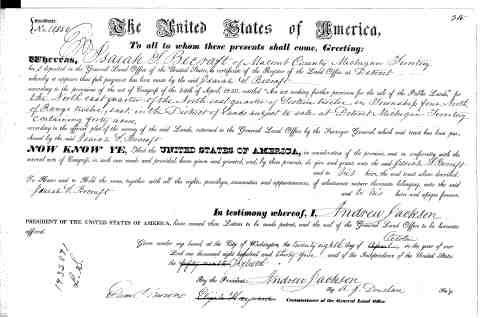 The United States of America,
To all to whom these presents shall come, Greeting:
WHEREAS, Isaiah S. Becraft, of Macomb County, Michigan Territory
has deposited in the General Land Office of the United States, a Certificate of the Register of the Land Office at Detroit
whereby it appears that full payment has been made by the said
according to the provisions of the act of Congress of the 24th of April, 1820, entitled "An act making further provision for the sale of the Public Lands," for
the North East quarter of the North East quarter of Section twelve in Township four North
of Range twelve, East in the District of Lands subject to sale at Detroit Michigan Territory
Containing forty acres,
according to the official plat of the survey of the said Lands, returned to the General Land Office by the Surveyor General, which said tract has been purchased by the said
NOW KNOW YE, That the UNITED STATES OF AMERICA, in consideration of the premises, and in conformity with the
several acts of Congress, in such case made and provided, have given and granted, and, by these presents, do give and grant unto the said
and to his heirs, the said tract above described:
To Have and to Hold the same, together with all the rights, privileges, immunities and appurtenances, of whatsoever nature thereunto belonging, unto the said
and to his heirs and assigns forever.
In testimony whereof, I, Andrew Jackson
PRESIDENT OF THE UNITED STATES OF AMERICA, have caused these Letters to be made patent, and the seal of the General Land Office to be hereunto
affixed.
Given under my hand at the City of Washington, the twenty eighth day of October in the year of our
Lord one thousand eight hundred and thirty five and of the Independence of the United States
the sixtieth
By the President: Andrew Jackson
By A. J. Donelson Sec'y.
Commissioner of the General Land Office.